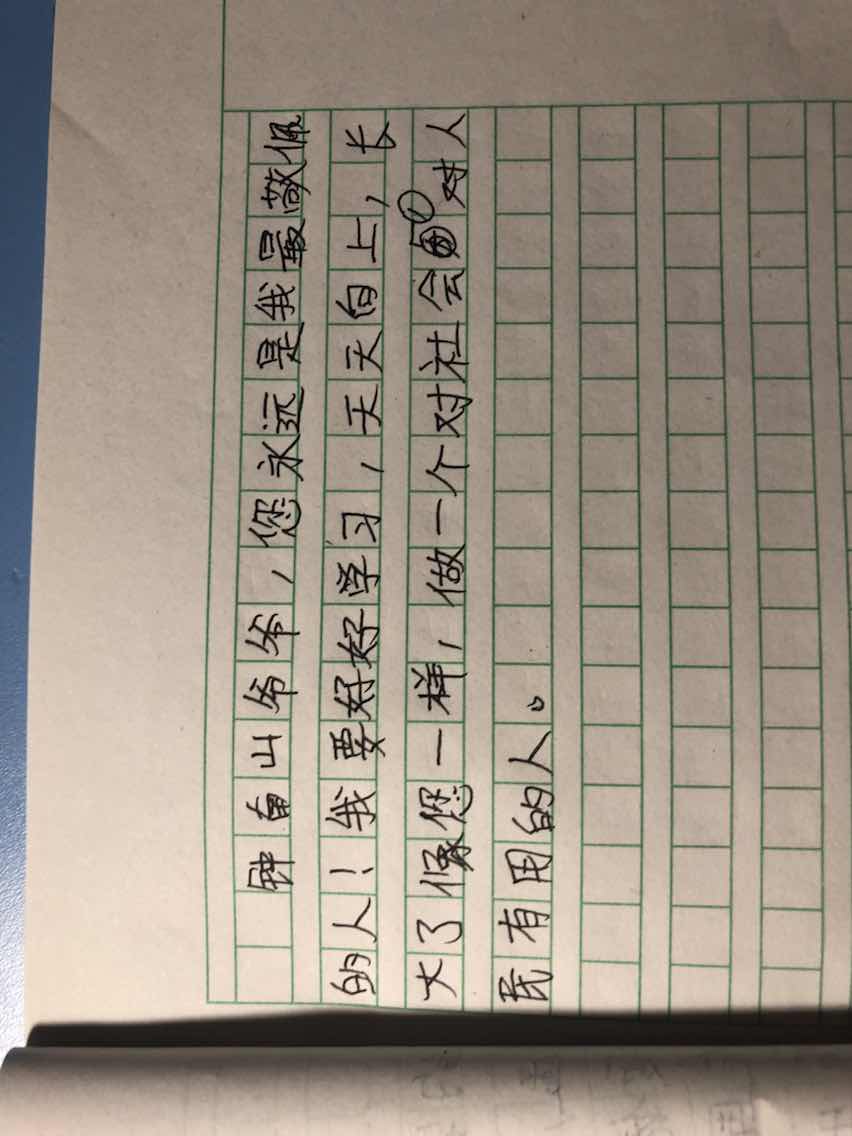 钟南山爷爷,您永远是我最敬佩
的人!我要好好学习,天天向上,长
大了像您一样,做一个对社会、对人
民有用的人。